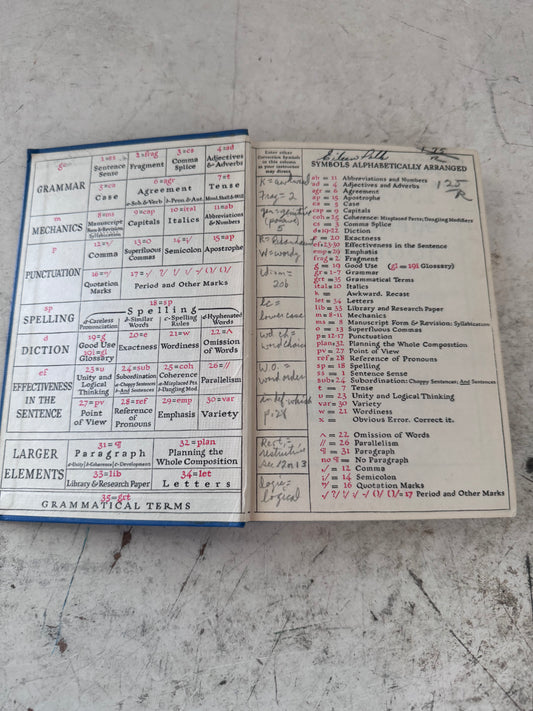 GRAMMAR
1=ss
Sentence
Sense
2=frag
Fragment
3=cs
Comma
Splice
4=ad
Adjectives
& Adverbs
5=ca
Case
6=agr
Agreement
a-Sub.&Verb b-Pron.& Ant.
7=t
Tense
Mood, Shall & Will
m
MECHANICS
8=ms
Manuscript
Form & Revision,
Syllabication
9=cap
Capitals
10=ital
Italics
11=ab
Abbreviations
& Numbers
p
PUNCTUATION
12=,/
Comma
13=o
Superfluous
Commas
14=;/
Semicolon
15=ap
Apostrophe
16="/
Quotation
Marks
Period and Other Marks
sp
SPELLING
18=sp
Spelling
a-Careless
Pronunciation
b-Similar
Words
c-Spelling
Rules
d-Hyphenated
Words
d
DICTION
19=g
Good Use
19i=gl
Glossary
20=e
Exactness
21=w
Wordiness
22=^
Omission of
Words
ef
EFFECTIVENESS
IN THE
SENTENCE
23=u
Unity and
Logical
Thinking
24=sub
Subordination
a-Choppy Sentences
b-And Sentences
25=coh
Coherence
a-Misplaced Pts.
b-Dangling Mod.
26=//
Parallelism
27=pv
Point of
View
28=ref
Reference of
Pronouns
29=emp
Emphasis
30=var
Variety
LARGER
ELEMENTS
31=¶
Paragraph
a-Unity; b-Coherence; c-Development
32=plan
Planning the
Whole Composition
33=lib
Library & Research Paper
34=let
Letters
35=grt
GRAMMATICAL TERMS
Enter other
Correction Symbols
in this column
as your instructor
may direct.
K = awkward
Frag = 2
5
W = wordy
idiom =
20b
lc =
lower case
word choice
W.O. =
word order
indef. which
p. 28
Rest. =
restrictive
see 12 or 13
logic =
logical
Eileen
125
R
SYMBOLS ALPHABETICALLY ARRANGED
ab = 11 Abbreviations and Numbers
ad = 4 Adjectives and Adverbs
agr = 6 Agreement
ap = 15 Apostrophe
ca = 5 Case
cap = 9 Capitals
coh = 25 Coherence: Misplaced Parts; Dangling Modifiers
cs = 3 Comma Splice
d = 19-22 Diction
e = 20 Exactness
ef = 23-30 Effectiveness in the Sentence
emp = 29 Emphasis
frag = 2 Fragment
g = 19 Good Use (gl = 19i Glossary)
gr = 1-7 Grammar
grt = 35 Grammatical Terms
ital = 10 Italics
k = Awkward. Recast
let = 34 Letters
lib = 33 Library and Research Paper
m = 8-11 Mechanics
ms = 8 Manuscript Form & Revision; Syllabication
o = 13 Superfluous Commas
p = 12-17 Punctuation
plan = 32 Planning the Whole Composition
pv = 27 Point of View
ref = 28 Reference of Pronouns
sp = 18 Spelling
ss = 1 Sentence Sense
sub = 24 Subordination: Choppy Sentences; And Sentences
t = 7 Tense
u = 23 Unity and Logical Thinking
var = 30 Variety
w = 21 Wordiness
x = Obvious Error. Correct it.
^ = 22 Omission of Words
// = 26 Parallelism
¶ = 31 Paragraph
no ¶ = No Paragraph
,/ = 12 Comma
;/ = 14 Semicolon
"/ = 16 Quotation Marks
= 17 Period and Other Marks